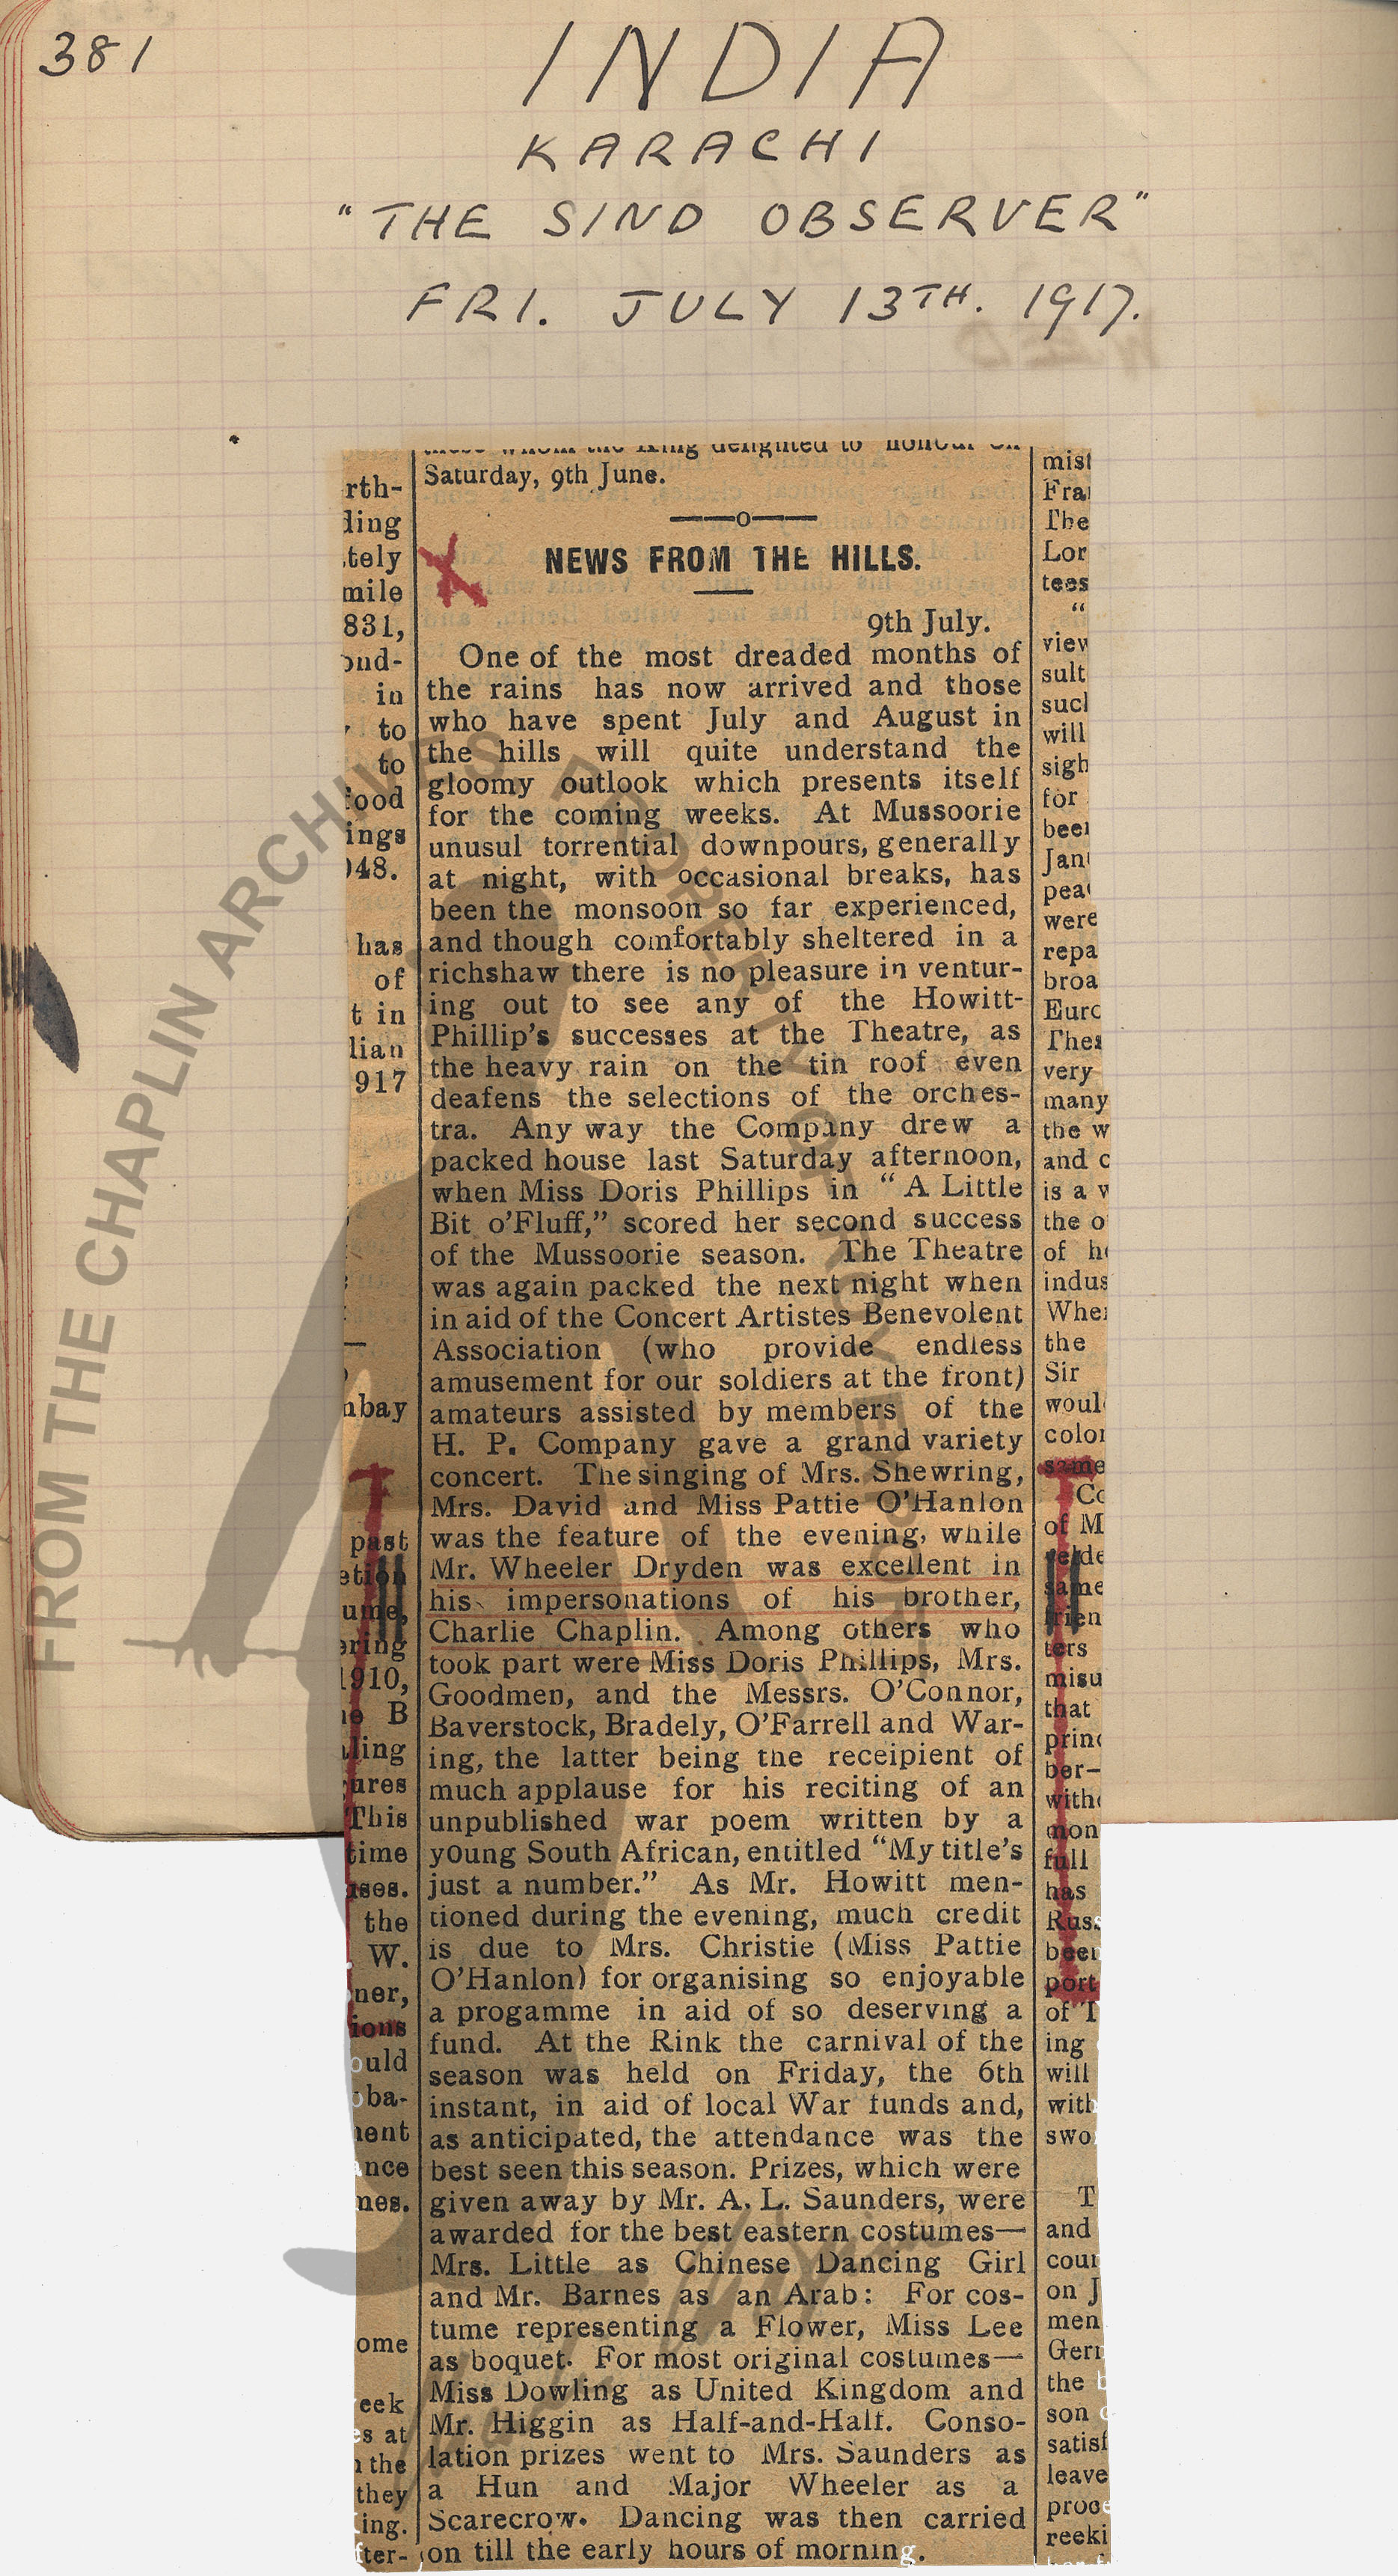 381
INDIA
KARACHI
"THE SIND OBSERVER"
FRI. JULY 13TH. 1917.
those whom the King delighted to honour on
Saturday, 9th June.
NEWS FROM THE HILLS.
9th July.
One of the most dreaded months of
the rains has now arrived and those
who have spent July and August in
the hills will quite understand the
gloomy outlook which presents itself
for the coming weeks. At Mussoorie
unusul torrential downpours, generally
at night, with occasional breaks, has
been the monsoon so far experienced,
and though comfortably sheltered in a
richshaw there is no pleasure in ventur-
ing out to see any of the Howitt-
Phillip's successes at the Theatre, as
the heavy rain on the tin roof even
deafens the selections of the orches-
tra. Any way the Company drew a
packed house last Saturday afternoon,
when Miss Doris Phillips in "A Little
Bit o'Fluff," scored her second success
of the Mussoorie season. The Theatre
was again packed the next night when
in aid of the Concert Artistes Benevolent
Association (who provide endless
amusement for our soldiers at the front)
amateurs assisted by members of the
H. P. Company gave a grand variety
concert. The singing of Mrs. Shewring,
Mrs. David and Miss Pattie O'Hanlon
was the feature of the evening, while
Mr. Wheeler Dryden was excellent in
his impersonations of his brother,
Charlie Chaplin. Among others who
took part were Miss Doris Phillips, Mrs.
Goodmen, and the Messrs. O'Connor,
Baverstock, Bradely, O'Farrell and War-
ing, the latter being the receipient of
much applause for his reciting of an
unpublished war poem written by a
young South African, entitled "My title's
just a number." As Mr. Howitt men-
tioned during the evening, much credit
is due to Mrs. Christie (Miss Pattie
O'Hanlon) for organising so enjoyable
a progamme in aid of so deserving a
fund. At the Rink the carnival of the
season was held on Friday, the 6th
instant, in aid of local War funds and,
as anticipated, the attendance was the
best seen this season. Prizes, which were
given away by Mr. A. L. Saunders, were
awarded for the best eastern costumes—
Mrs. Little as Chinese Dancing Girl
and Mr. Barnes as an Arab: For cos-
tume representing a Flower, Miss Lee
as boquet. For most original costumes—
Miss Dowling as United Kingdom and
Mr. Higgin as Half-and-Half. Conso-
lation prizes went to Mrs. Saunders as
a Hun and Major Wheeler as a
Scarecrow. Dancing was then carried
on till the early hours of morning.
FROM THE CHAPLIN ARCHIVES